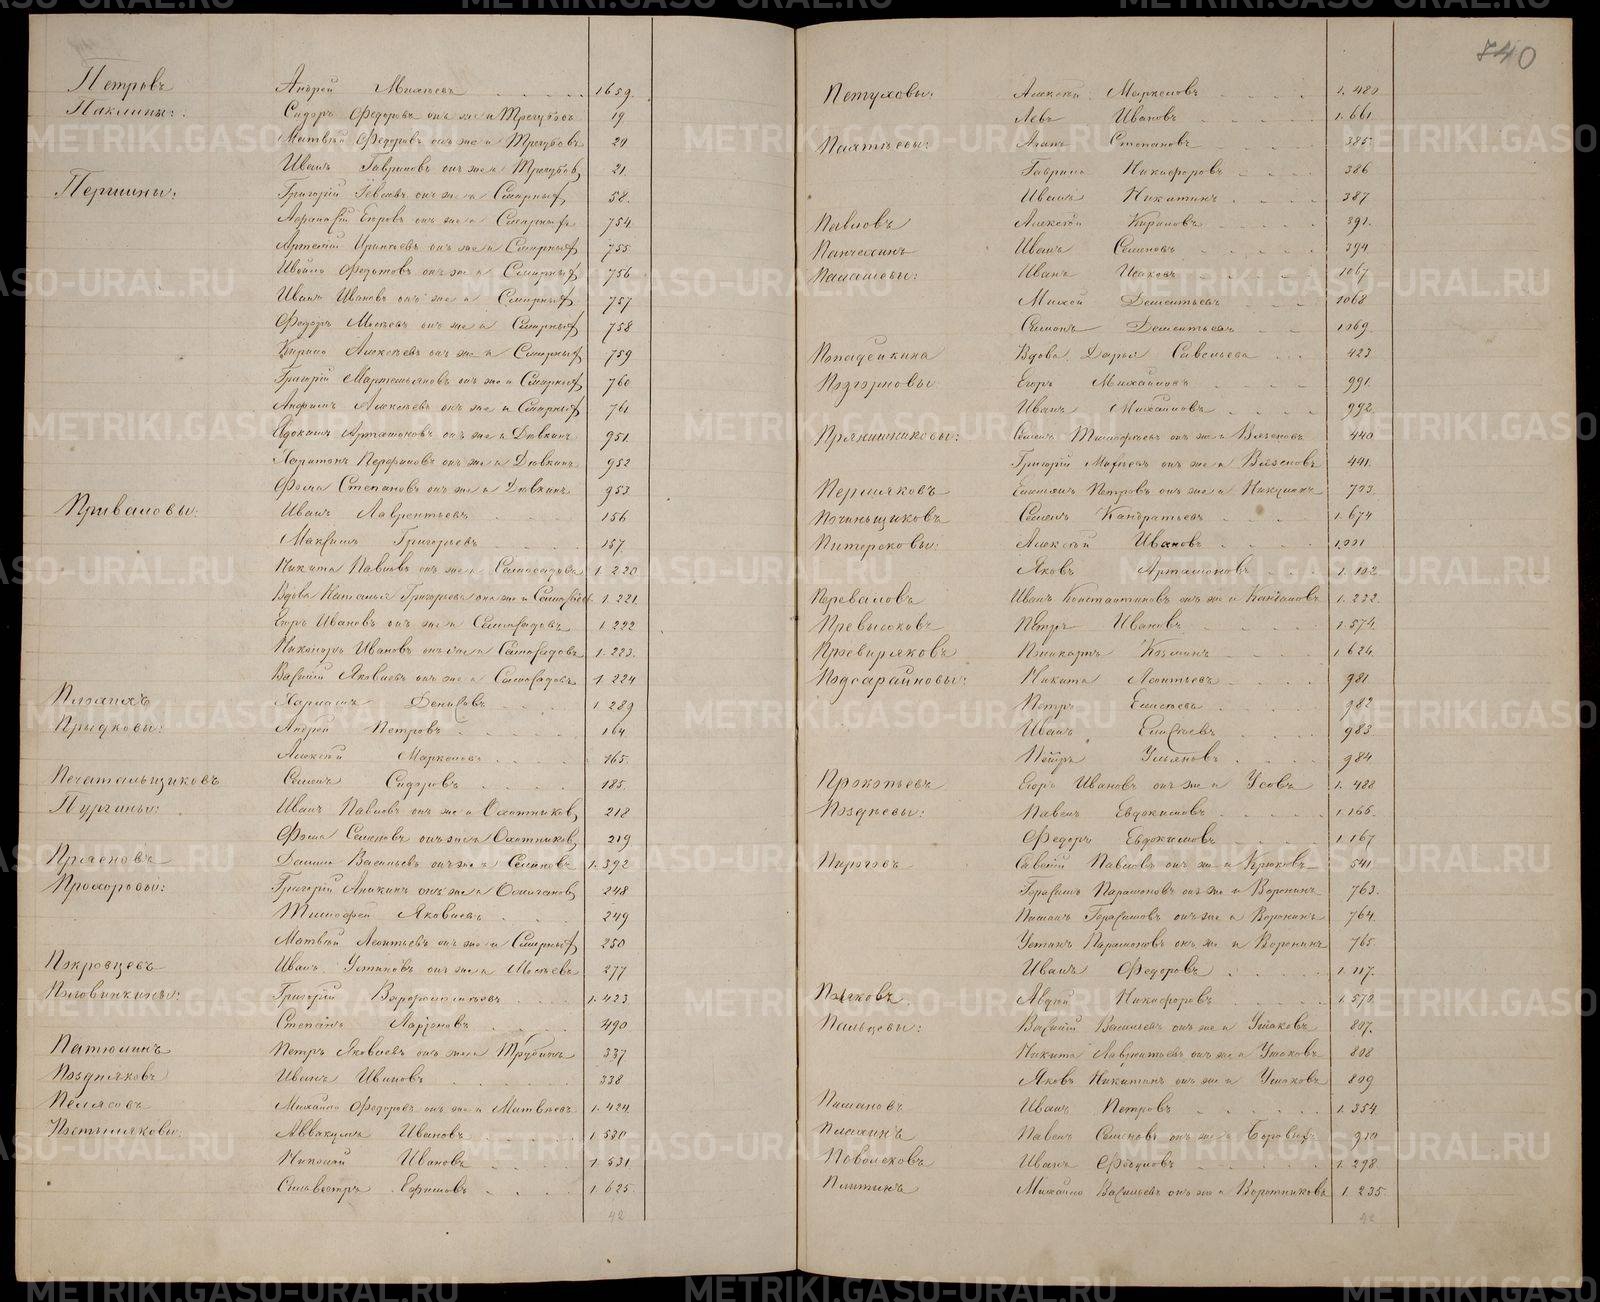 Петровъ Андрей Михѣевъ 1659.
Паклины: Сидоръ Федоровъ онъ же и Трегубовъ 19
Матвѣй Федоровъ онъ же и Трегубовъ 20
Иванъ Гавриловъ онъ же и Трегубовъ 21.
Першины: Григорій Іевлевъ онъ же и Смирныхъ 58.
Афанасій Егоровъ онъ же и Смирныхъ 754
Артемій онъ же и Смирныхъ 755.
Федотовъ онъ же и Смирныхъ 756
Иванъ Ивановъ онъ же и Смирныхъ 757
Федоръ Мосѣевъ онъ же и Смирныхъ 758
Кирило Алексѣевъ онъ же и Смирныхъ 759
Григорій Мартемьяновъ онъ же и Смирныхъ 760
Алексѣевъ онъ же и Смирныхъ 761
Артамоновъ онъ же и Дювкинъ 951.
Харитонъ Перфиловъ онъ же и Дювкинъ 952
Фома Степановъ онъ же и Дювкинъ 953
Приваловы: Иванъ Лаврентьевъ 156
Максимъ Григорьевъ 157.
Никита Павловъ онъ же и Самосадовъ 1.220
Вдова Наталья Григорьева она же и 1.221.
Егоръ Ивановъ онъ же и Самосадовъ 1.222
Никаноръ Ивановъ онъ же и Самосадовъ 1.223.
Василій Яковлевъ онъ же и Самосадовъ 1.224
Денисовъ 1.289
Прытковы: Андрей Петровъ 164.
Алексѣй Маркеловъ 165.
Печатальщиковъ Семенъ Сидоровъ 185.
Пургины: Иванъ Павловъ онъ же и Охотниковъ 218
Фома Семеновъ онъ же и Охотниковъ 219
Васильевъ онъ же и Семеновъ 1.392
Прохоровы: Григорій Аникинъ онъ же и 248
Тимофей Яковлевъ 249
Матвѣй Леонтьевъ онъ же и Смирныхъ 250
Покровцевъ Иванъ Устиновъ онъ же и Мосѣевъ 277
Половинкины: Григорій Варфоломѣевъ 1.423
Степанъ Ларіоновъ 490
Патюлинъ Петръ Яковлевъ онъ же и Трубинъ 337
Поздняковъ Иванъ Ивановъ 338
Пелясовъ Михайло Федоровъ онъ же и Матвѣевъ 1.424
Аввакумъ Ивановъ 1.530
Николай Ивановъ 1.531
Сильвестръ Ефимовъ 1.625.
42
740
Пѣтуховы: Алексѣй Маркеловъ 1.480
Левъ Ивановъ 1.661
Паятьевы: Агапъ Степановъ 385
Гаврило Никифоровъ 386
Иванъ Никитинъ 387
Павловъ Алексѣй Кириловъ 391.
Панчехинъ Иванъ Семеновъ 394
Палашевы: Иванъ Исаковъ 1067
Михей Дементьевъ 1068
Семенъ Дементьевъ 1069.
Попадейкина Вдова Дарья Савельева 423
Позгорновы Егоръ Михайловъ 991.
Иванъ Михайловъ 992.
Прянишниковы: Семенъ Тимофѣевъ онъ же и Вязеновъ 440
Григорій Матвѣевъ онъ же и Вязеновъ 441.
Пермяковъ Петровъ онъ же и 733.
Починьщиковъ Семенъ Кандратьевъ 1.674
Питерсковы: Алексѣй Ивановъ 1.001
Яковъ Артамоновъ 1.102
Переваловъ Иванъ Константиновъ онъ же и 1.222.
Превысоковъ Петръ Ивановъ 1.574.
Превиряковъ Козминъ 1.624.
Подсарайновы: Никита Леонтьевъ 981
Петръ Елисѣевъ 982
Иванъ Елисѣевъ 983
Петръ Ульяновъ 984
Прокопьевъ Егоръ Ивановъ онъ же и Усовъ 1.488
Поздѣевы: Павелъ Евдокимовъ 1.166.
Федоръ Евдокимовъ 1.167
Пироговъ Савелій Павловъ онъ же и Крюковъ 541
Герасимъ Парамоновъ онъ же и Воронинъ 763.
Герасимовъ онъ же и Воронинъ 764.
Устинъ Парамоновъ онъ же и Воронинъ 765.
Иванъ Федоровъ 1.117.
Поляковъ Авдѣй Никифоровъ 1.570
Пальцевы: Василій Васильевъ онъ же и Ушаковъ 807.
Никита Лаврентьевъ онъ же и Ушаковъ 808
Яковъ Никитинъ онъ же и Ушаковъ 809
Пимановъ Иванъ Петровъ 1.354.
Плехинъ Павелъ Семеновъ онъ же и Боровыхъ 910
Поволоковъ Иванъ 1.298.
Плитинъ Михайло Васильевъ онъ же и Воротниковъ 1.235.
42
METRIKI.GASO-URAL.RU